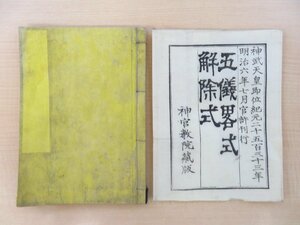 神武天皇即位紀元二千五百三十三年
明治六年七月官許刊行
五儀畧式
解除式
神宮教院藏版